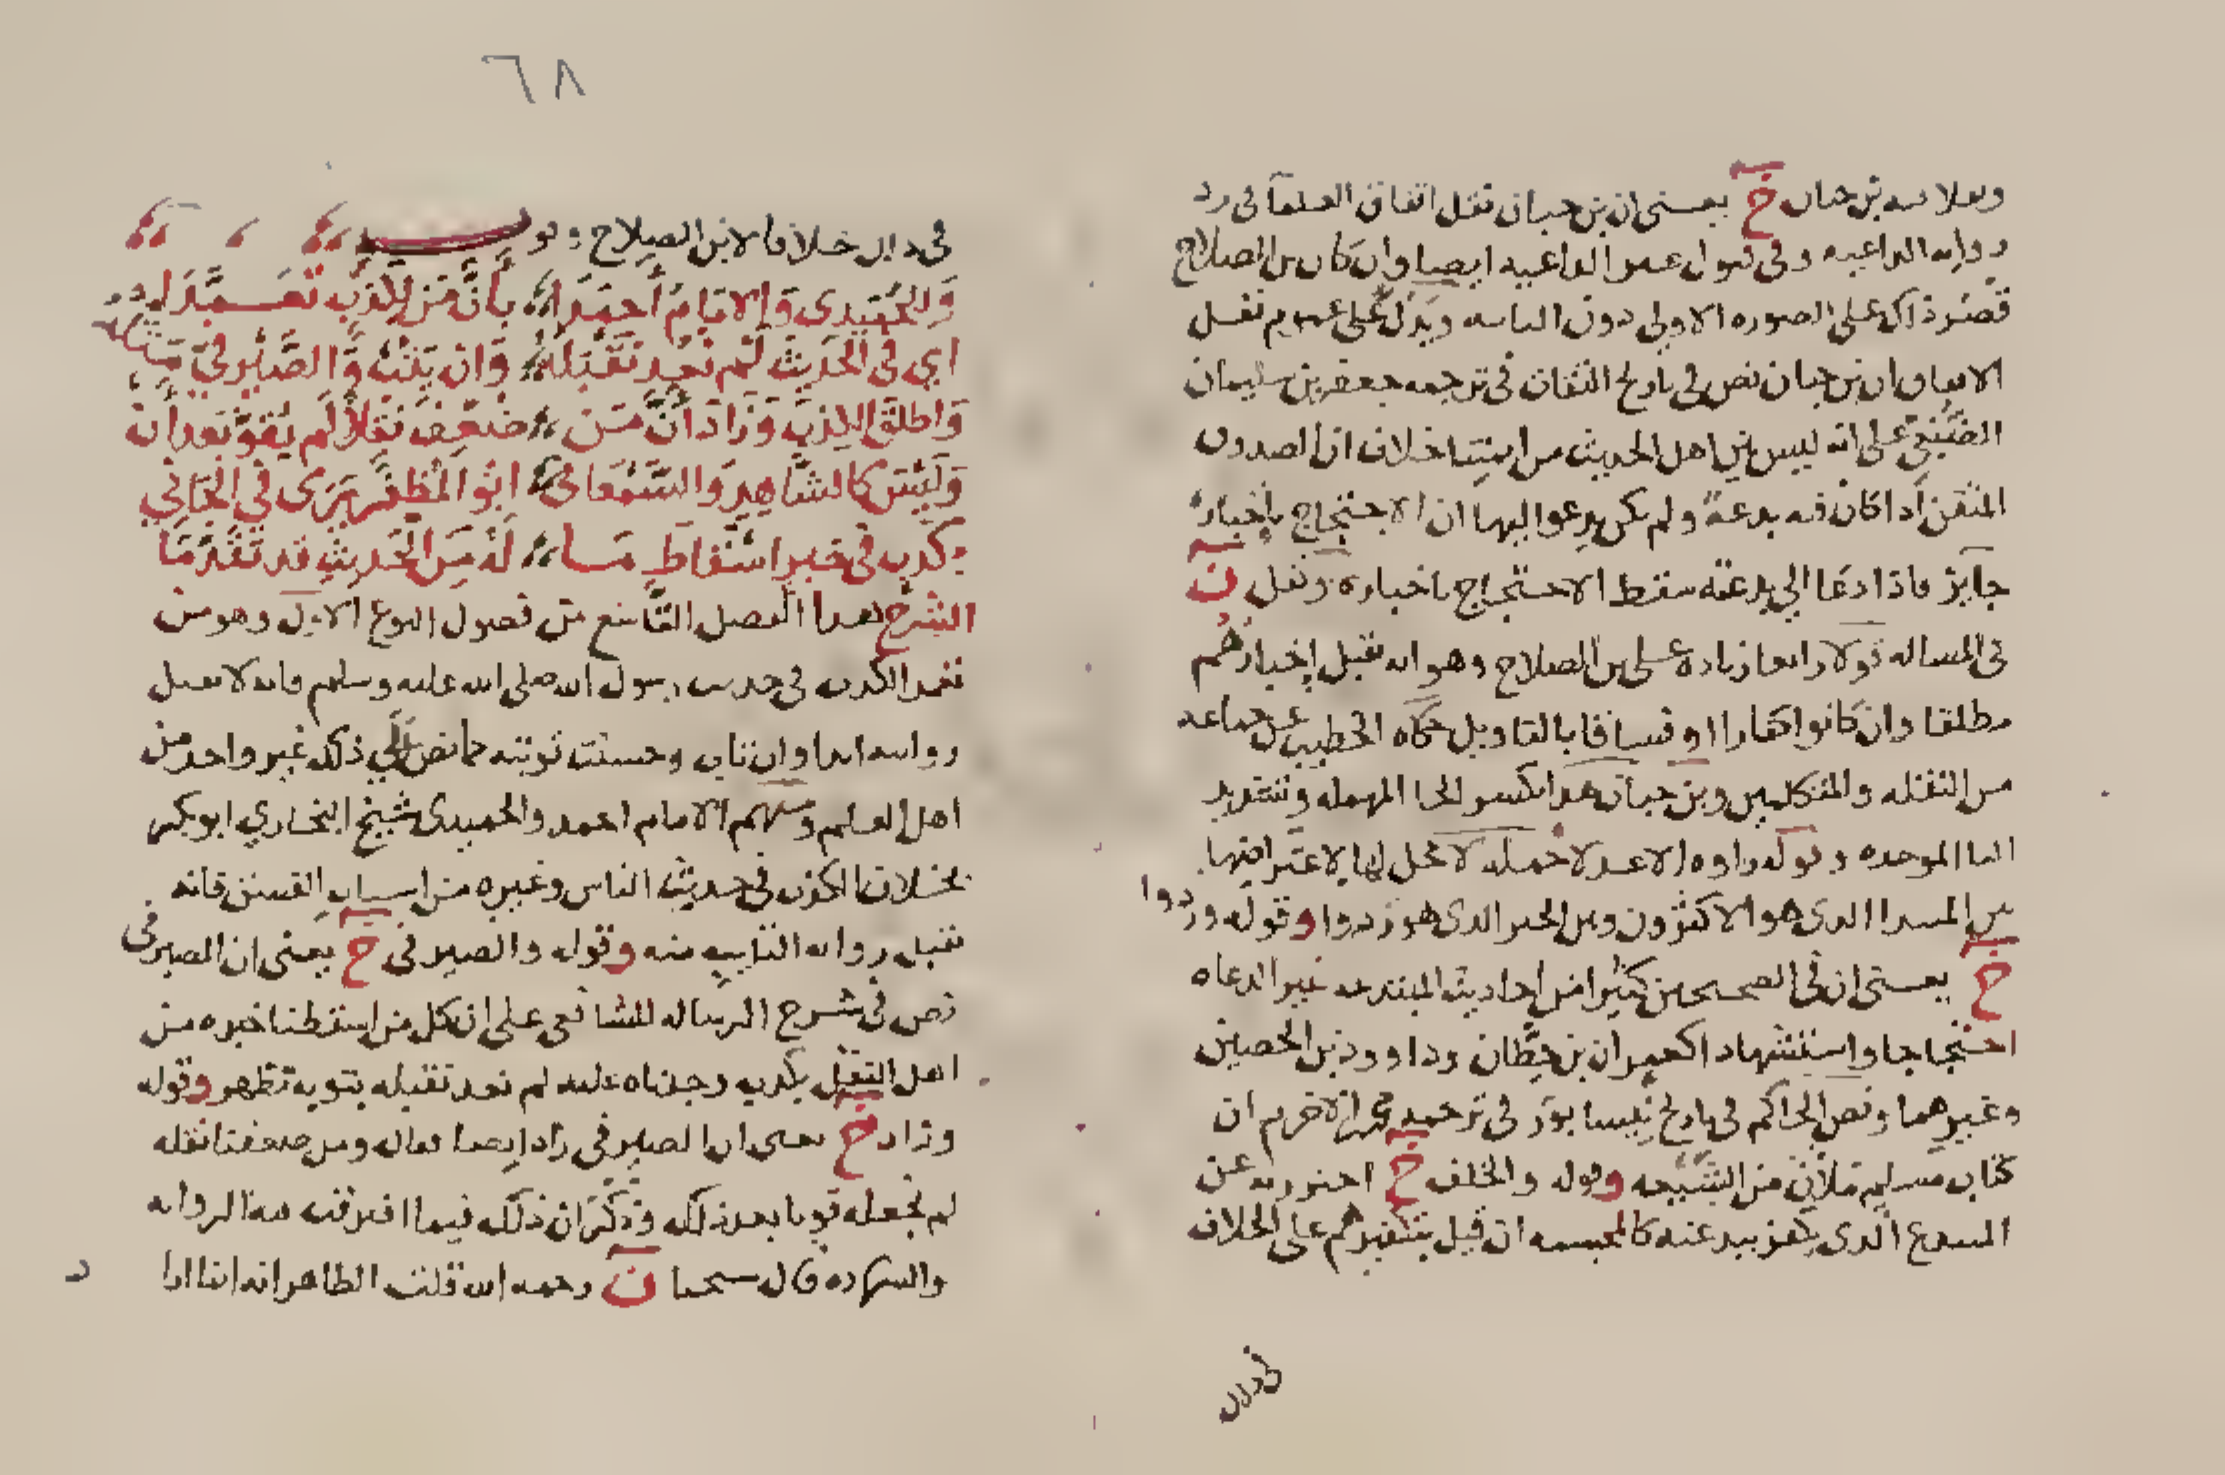 ونقلا فيه بن حبان خ يعني ان بن حبان نقل اتفاق العلما في رد
رواية الداعيه وفي قبول غير الداعيه ايضا وان كان بن الصلاح
قصر ذلك على الصوره الاولى دون الثانيه ويدل على عموم نقل
الاتفاق ان بن حبان نص في تاريخ الثقات في ترجمه جعفر بن سليمان
الضبعي على انه ليس بين اهل الحديث من ايمتنا خلاف ان الصدوق
المتقن اذا كان فيه بدعة ولم يكن يدعوا اليها ان الاحتجاج باخباره
جايز فاذا دعا الى بدعته سقط الاحتجاج باخباره ونقل ن
في المساله قولا رابعا زياده على بن الصلاح وهو انه تقبل اخبارهم
مطلقا وان كانوا كفارا او فساقا بالتاويل حكاه الخطيب عن جماعه
من النقله والمتكلمين وبن حبان هذا بكسر الحا المهمله وتشديد
البا الموحده وقوله راوه الاعدلا جمله لا محل لها لاعتراضها
بين المبتدا الذي هو الاكثرون وبين الخبر الذي هو ردوا وقوله وردوا
خ يعني ان في الصحيحين كثيرا من احاديث المبتدعه غير الدعاه
احتجاجا واستشهادا كعمران بن حطان وداوود بن الحصين
وغيرهما ونص الحاكم في تاريخ نيسابور في ترجمه محمد بن الاخرم ان
كتاب مسلم ملآن من الشيعه وقوله والخلف خ احترز به عن
المبتدع الذي يكفر ببدعته كالمجسمه ان قيل بتكفيرهم على الخلاف
في ذلك
٦٨
في ذلك خلافا لابن الصلاح وقوله
وللحميدي والامام احمدا بان من للكذب تعمدا
اي في الحديث لم نعد نقبله وان يتب والصيرفي مثله
واطلق الكذب وزاد ان من ضعف نقلا لم يقو بعد ان
وليس كالشاهد والسمعاني ابو المظفر يرى في الجاني
بكذب في خبر اسقاط ما له من الحديث قد تقدما
الشرح هذا الفصل التاسع من فصول النوع الاول وهو من
تعمد الكذب في حديث رسول الله صلى الله عليه وسلم فانه لا تقبل
روايته ابدا وان تاب وحسنت توبته كما نص على ذلك غير واحد من
اهل العلم ومنهم الامام احمد والحميدي شيخ البخاري ابو بكر
بخلاف الكذب في حديث الناس وغيره من اسباب الفسق فانه
تقبل رواية التايب منه وقوله والصيرفي خ يعني ان الصيرفي
نص في شرح الرساله للشافعي على ان كل من اسقطنا خبره من
اهل النقل بكذب وجدناه عليه لم نعد نقبله بتوبه تظهر وقوله
وزاد خ يعني ان الصيرفي زاد ايضا فقاله ومن ضعفنا نقله
لم نجعله قويا بعد ذلك وذكر ان ذلك فيما افترقت فيه الروايه
والشهاده قال شيخنا ن رحمه الله قلت الظاهر انه انما ارا
د